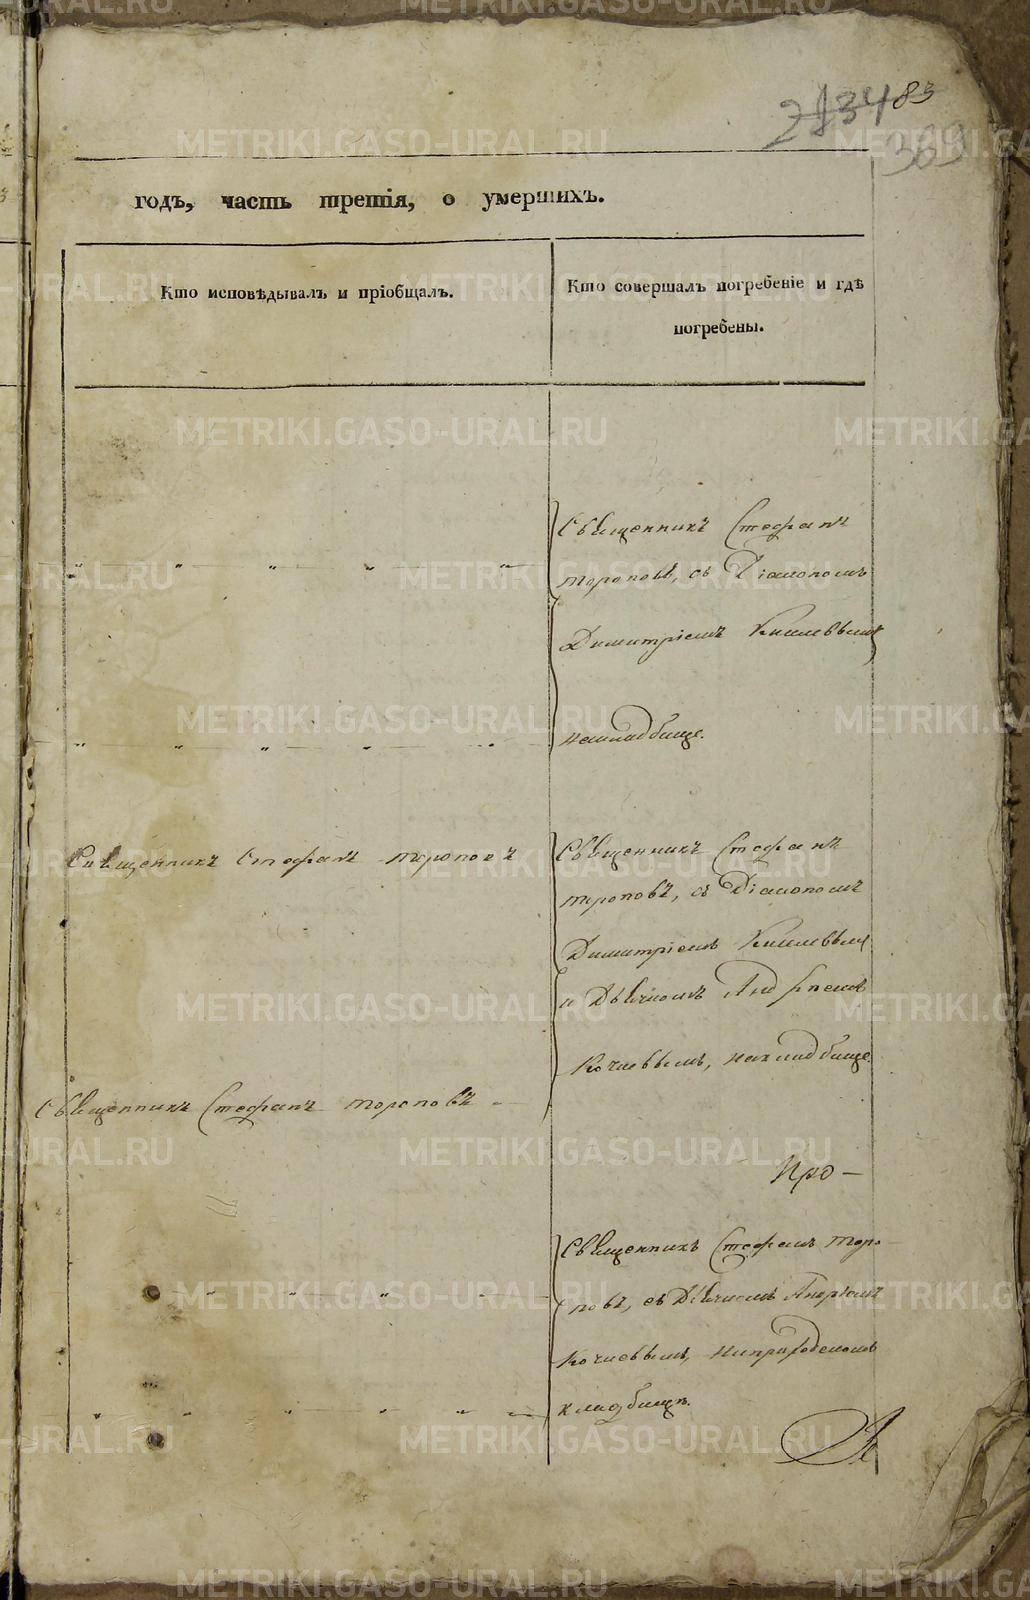 83
годъ, часть третія, о умершихъ.
Кто исповѣдывалъ и пріобщалъ.
Кто совершалъ погребеніе и гдѣ
погребены.
Священникъ Стефанъ
Тороповъ, съ Діакономъ
Димитріемъ
накладбище.
Священникъ Стефанъ Тороповъ
Священникъ Стефанъ
Тороповъ, съ Діакономъ
Димитріемъ
и Дьячкомъ Андреемъ
накладбище
Священникъ Стефанъ Тороповъ
Про-
Священникъ Стефанъ Торо-
повъ, съ Дьячкомъ Андреемъ
наприходскомъ
кладбищѣ.
METRIKI.GASO-URAL.RU